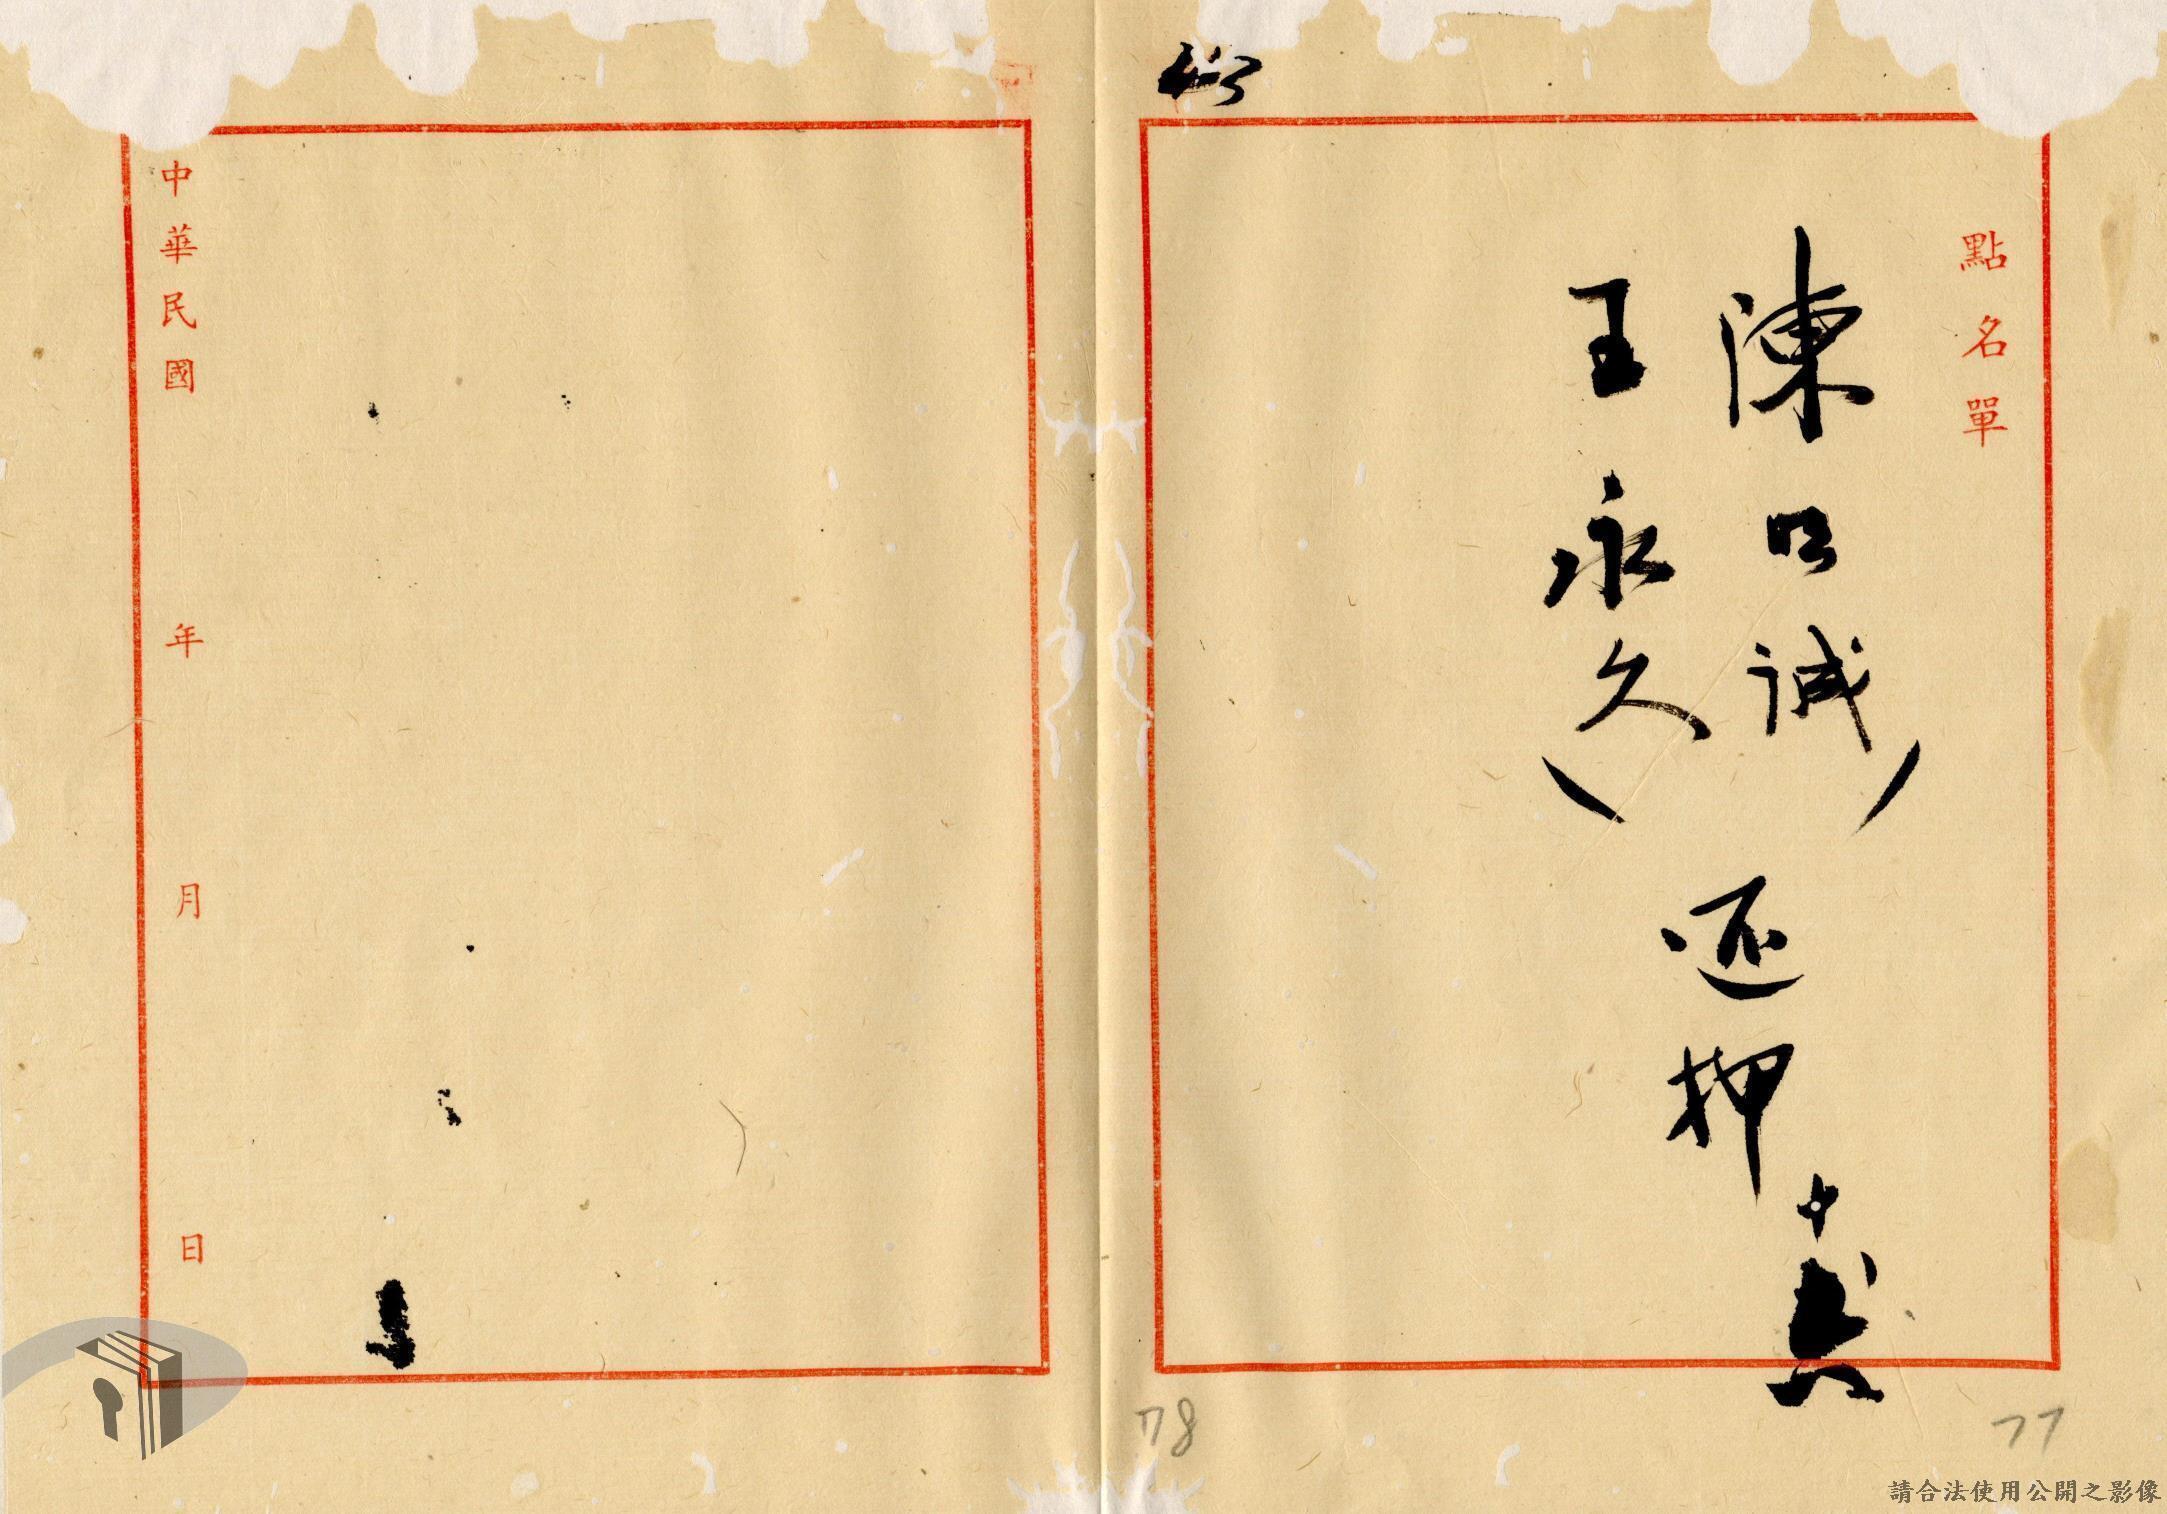 點名單
陳明誠
王永久
还押
中華民國 年 月 日
77
78
請合法使用公開之影像